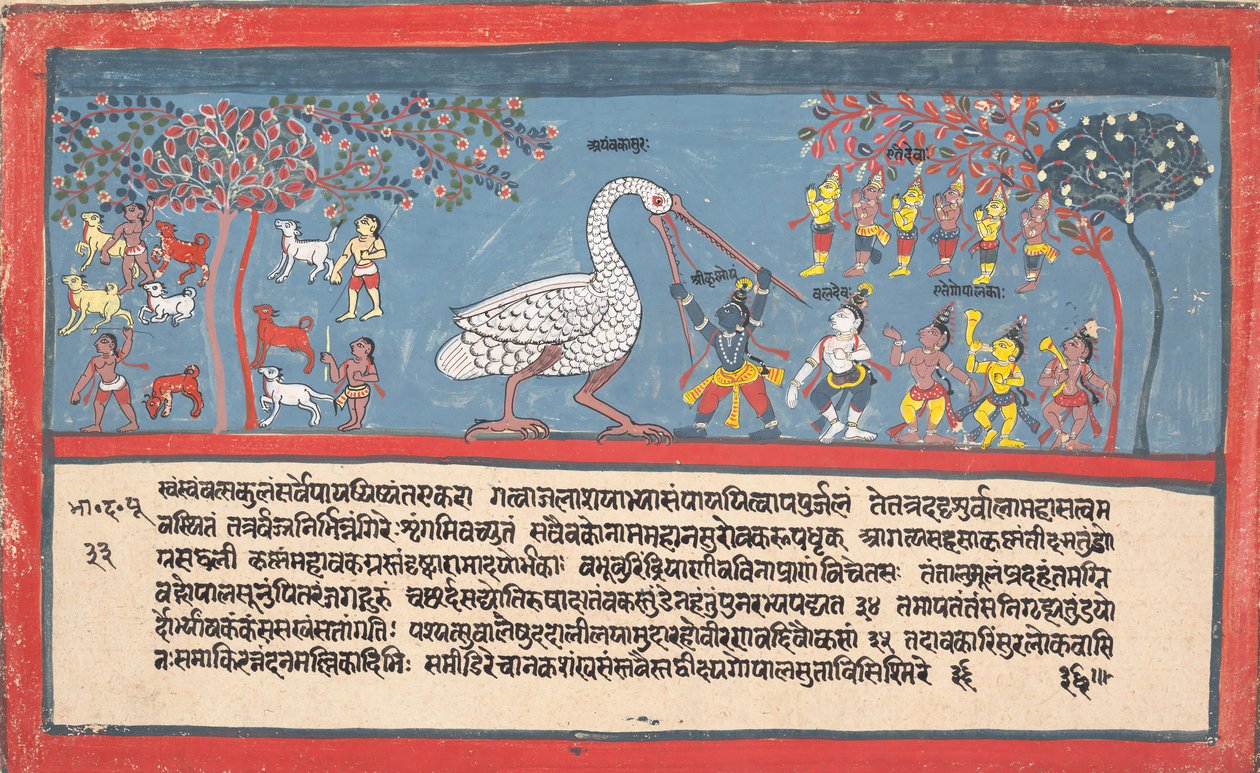 अयंवकासुरः
एतेदेवाः
श्रीकृस्मोयं
वलदेवः
एतेगोपालकाः
स्वंस्वंवत्सकुलंसर्वेपाययिष्यंतएकदा गत्वाजलाशयाभ्यासंपाययित्वापपुर्जलं तेतत्रददृशुर्वालामहासत्वम
भा॰द॰पू
वस्थितं तत्रर्वज्रनिर्भिन्नंगिरेःशृंगमिवच्युतं सवैवकोनाममहानसुरोवकरूपधृक् आगत्यसहसाकृष्णंतीक्ष्मतुंडो
३३
ग्रसद्वली कृष्णंमहावकग्रस्तंदृष्ट्वारामादयोर्भकाः वभूवुरिंद्रियाणीवविनाप्राणंविचेतसः तंतालुमूलंप्रदहंतमग्नि
वद्गोपालसूनुंपितरंजगद्गुरुं चछर्दसद्योतिरुषाक्षतंवकस्तुंडेनहंतुंपुनरभ्यपद्यत ३४ तमापतंतंसनिगृह्यतुंडयो
र्दोर्भ्यांवकंकंससखंसतांगतिः पश्यत्सुवालेषुददारलीलयामुदावहोवीरणवद्दिवौकसां ३५ तदावकारिंसुरलोकवासि
नःसमाकिरन्नंदनमल्लिकादिभिः समीडिरेचानकशंखसंस्तवैस्तद्वीक्ष्यगोपालसुताविसिस्मिरे ३६ ३६॥